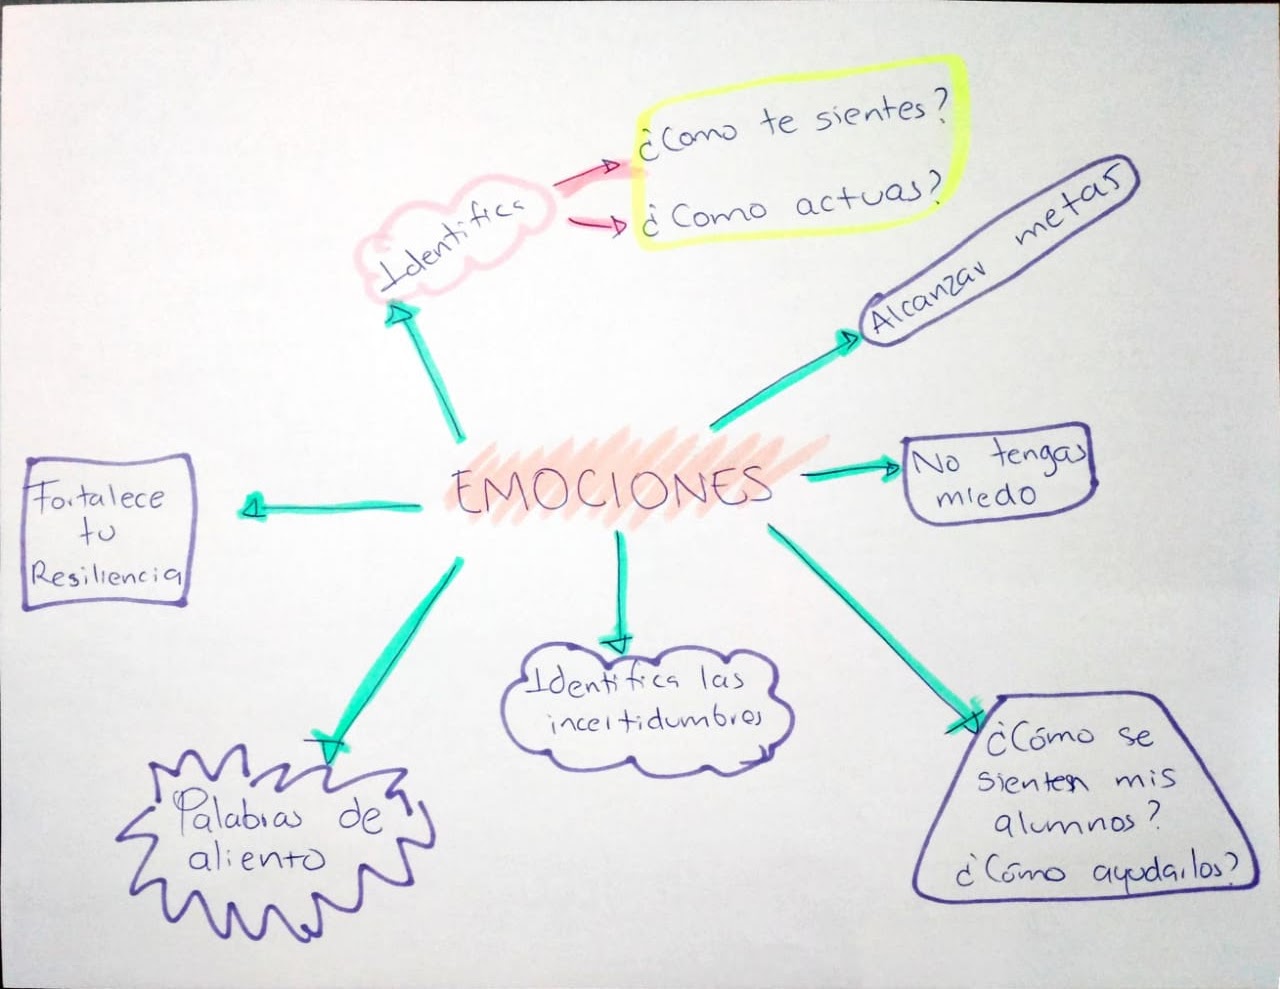 ¿Como te sientes?
¿Como actuas?
Identifica
Alcanzar metas
EMOCIONES
No tengas
miedo
Fortalece
tu
Resiliencia
Identifica las
incertidumbres
¿Cómo se
sienten mis
alumnos?
¿Cómo ayudarlos?
Palabras de
aliento